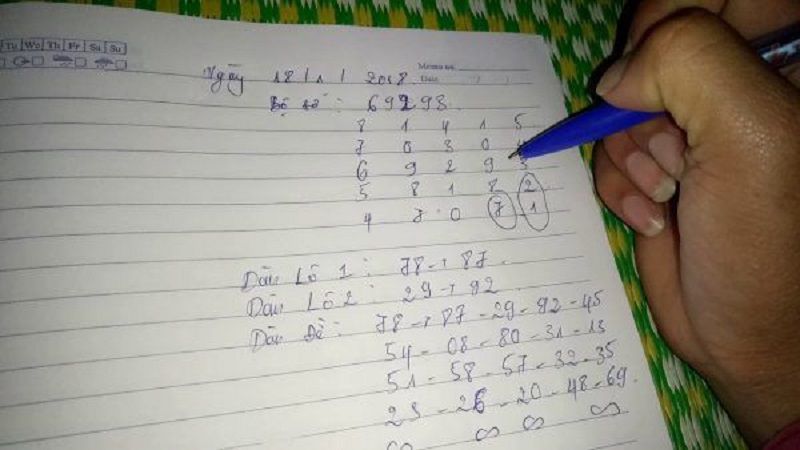 Tu We Th Fr Sa Su
Memo No.
Date / /
Ngày 18/1/2018
Bộ số: 69298
8 1 4 1 5
7 0 3 0 4
6 9 2 9 3
5 8 1 8 2
4 7 0 7 1
Dàn Lô 1: 78 → 87.
Dàn Lô 2: 29 → 92
Dàn Đề: 78 → 87 - 29 - 92 - 45
54 - 08 - 80 - 31 - 13
51 - 58 - 57 - 32 - 35
23 - 26 - 20 - 48 - 69.
∞ ∞ ∞ ∞